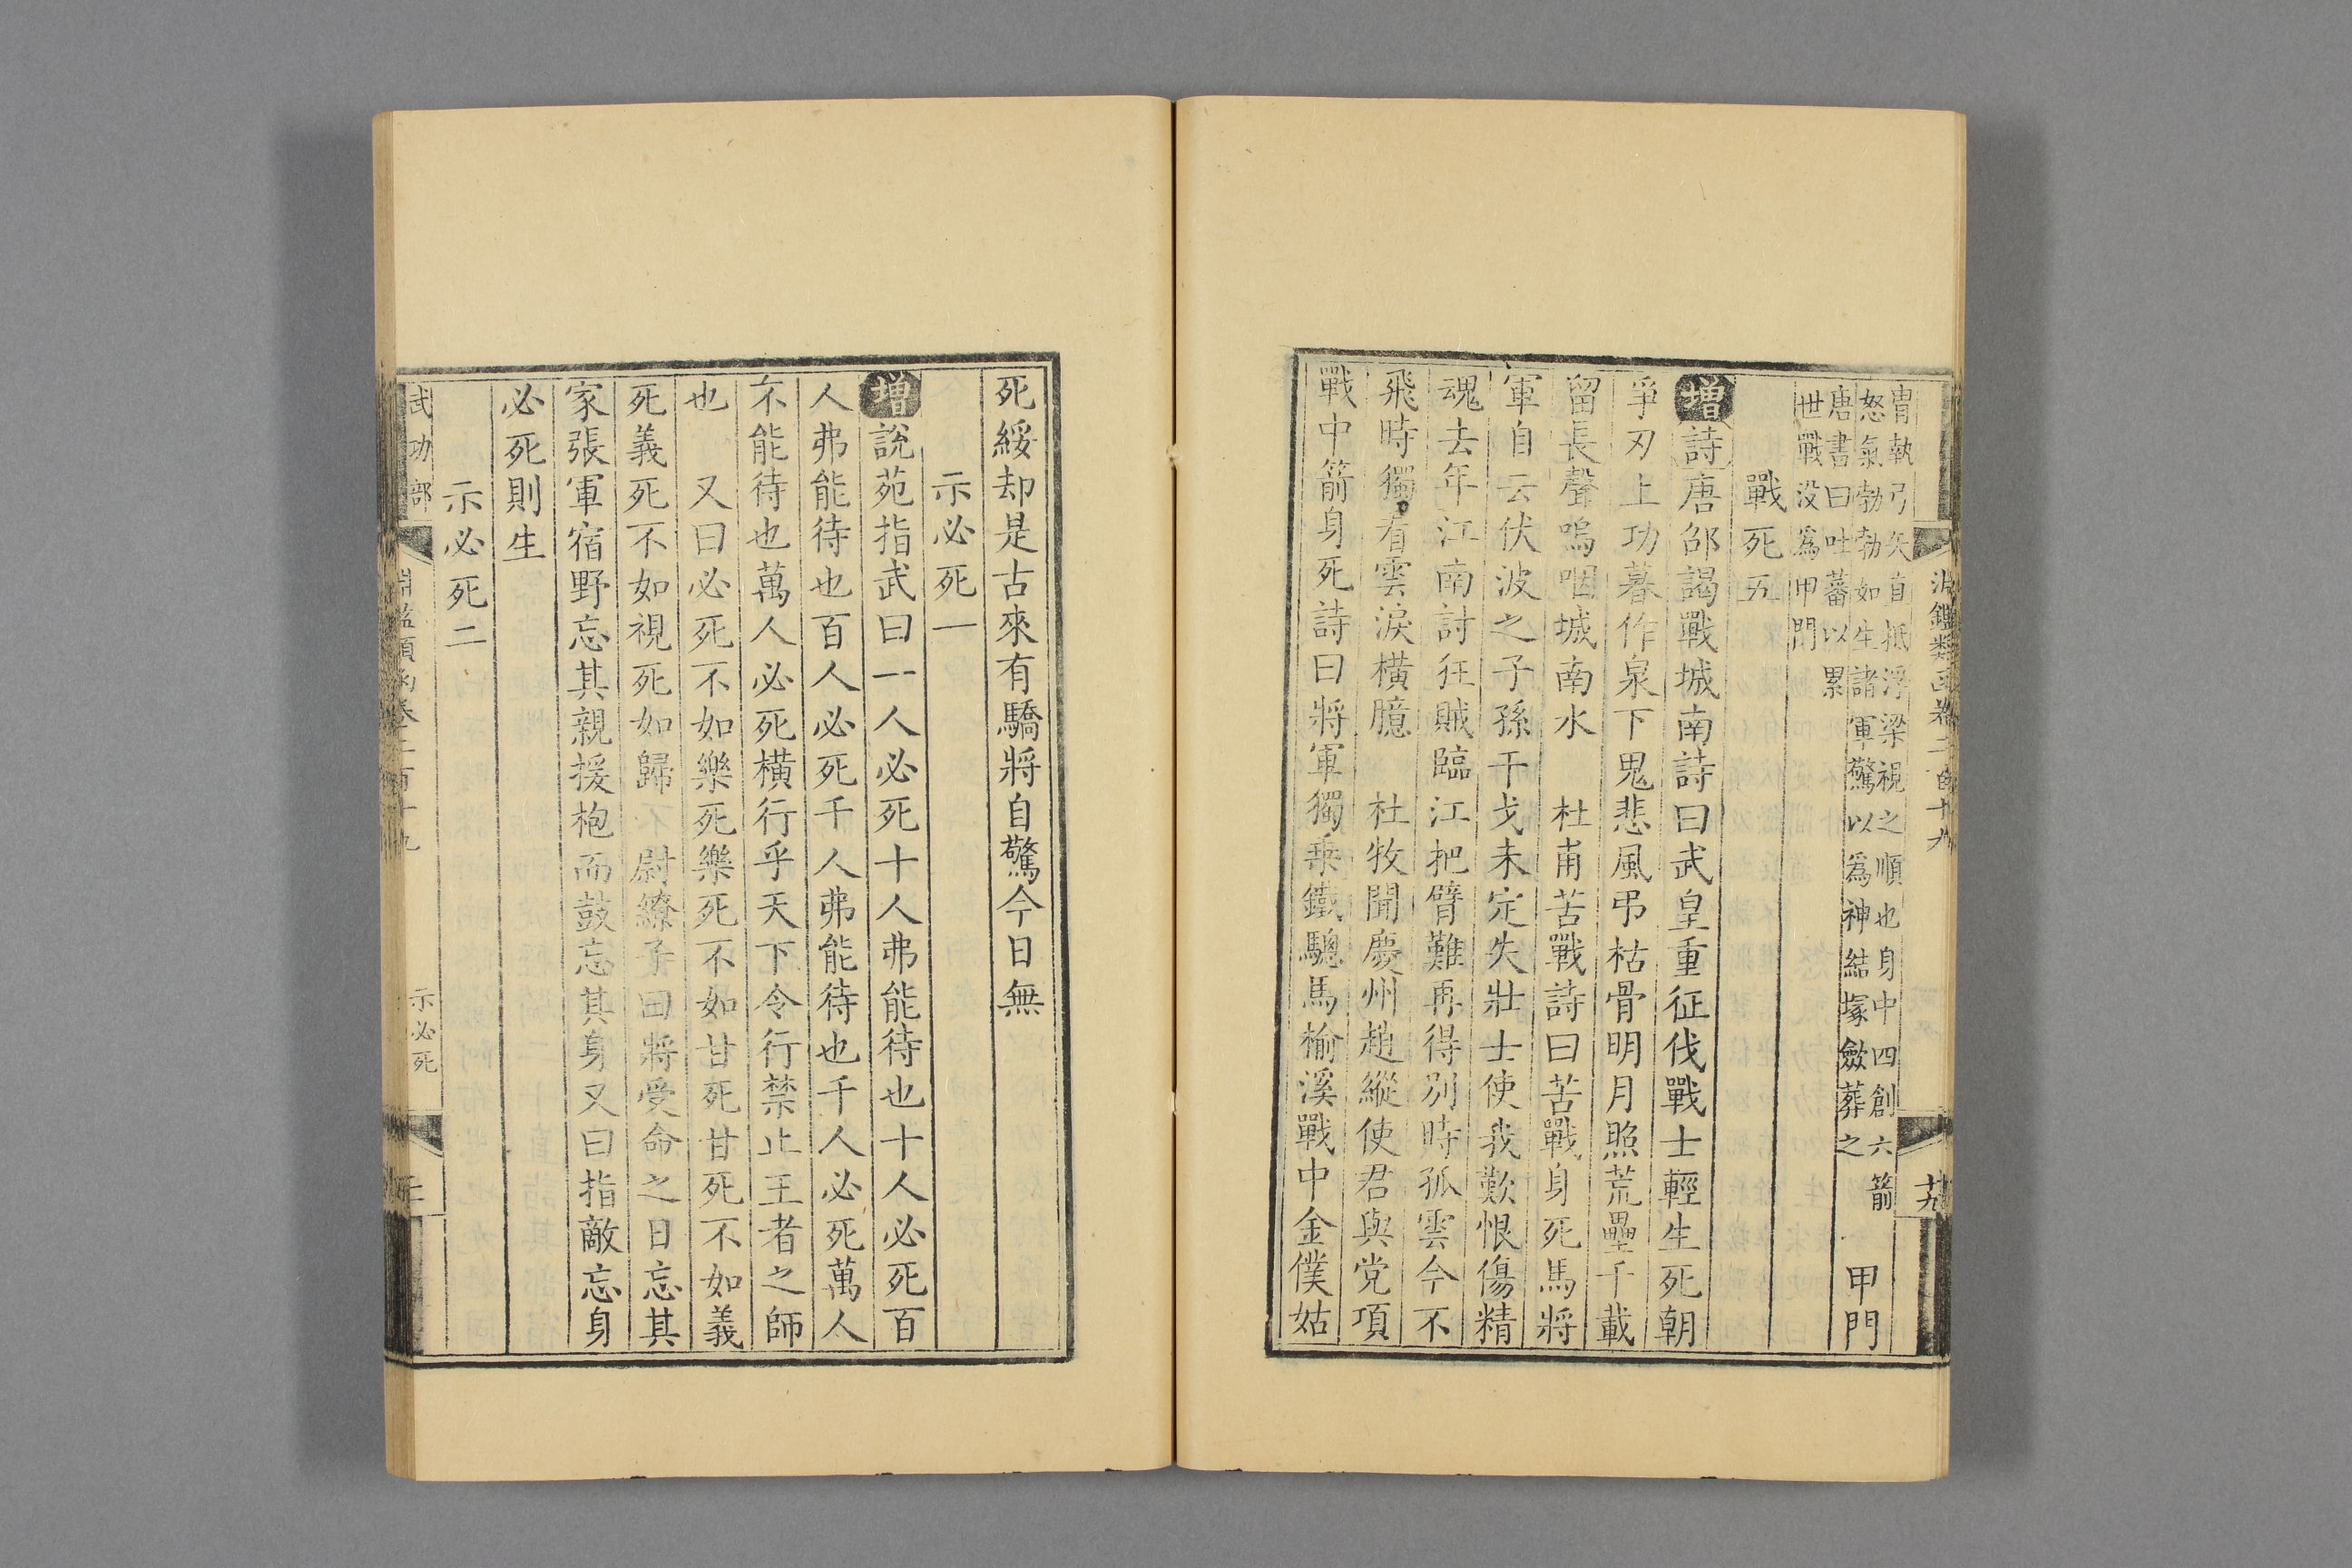 淵鑑類函卷二百十九
廿九
冑執弓矢直抵浮梁視之順也身中四創六箭
怒氣勃勃如生諸軍驚以為神結塚斂葬之
甲門
唐書曰吐蕃以累
世戰没為甲門
戰死五
增詩唐邵謁戰城南詩曰武皇重征伐戰士輕生死朝
爭刃上功暮作泉下鬼悲風弔枯骨明月照荒壘千載
留長聲嗚咽城南水　杜甫苦戰詩曰苦戰身死馬將
軍自云伏波之子孫干戈未定失壯士使我歎恨傷精
魂去年江南討狂賊臨江把臂難再得別時孤雲今不
飛時獨有雲淚橫臆　杜牧聞慶州趙縱使君與党項
戰中箭身死詩曰將軍獨乗鐵驄馬榆溪戰中金僕姑
死綏却是古來有驕將自驚今日無
示必死一
增說苑指武曰一人必死十人弗能待也十人必死百
人弗能待也百人必死千人弗能待也千人必死萬人
不能待也萬人必死橫行乎天下令行禁止王者之師
也　又曰必死不如樂死樂死不如甘死甘死不如義
死義死不如視死如歸　尉繚子曰將受命之日忘其
家張軍宿野忘其親援枹而鼓忘其身又曰指敵忘身
必死則生
示必死二
武功部
淵鑑類函卷二百十九
示必死